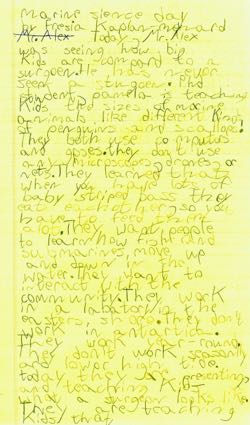 marine sience day
by Fresia Kaplan-minard
Mr. Alex today Mr. Alex
was seeing how big
Kids are compard to a
surgoen. He has never
seen a sturgoen. And
pamela is teaching
Kids the sizes of marine
animals like different Kinds
of penguins and scallops.
They both use computers
and They don't use
any microscopes, drones or
nets. They learned that
when you have lots of
baby striped bass they
eat eachother so you
have to feed them
alot. They want people
to learn how fish and
submarines move up
and down in the
water. They want to
interact with the
community. They work
in a labratory in the
eastern shore. They don't
work in antartica.
They work year-round.
They don't work seasonly
and low or high tide.
today they
teaching K
what a surgoen looks like.
They are teaching
Kids that